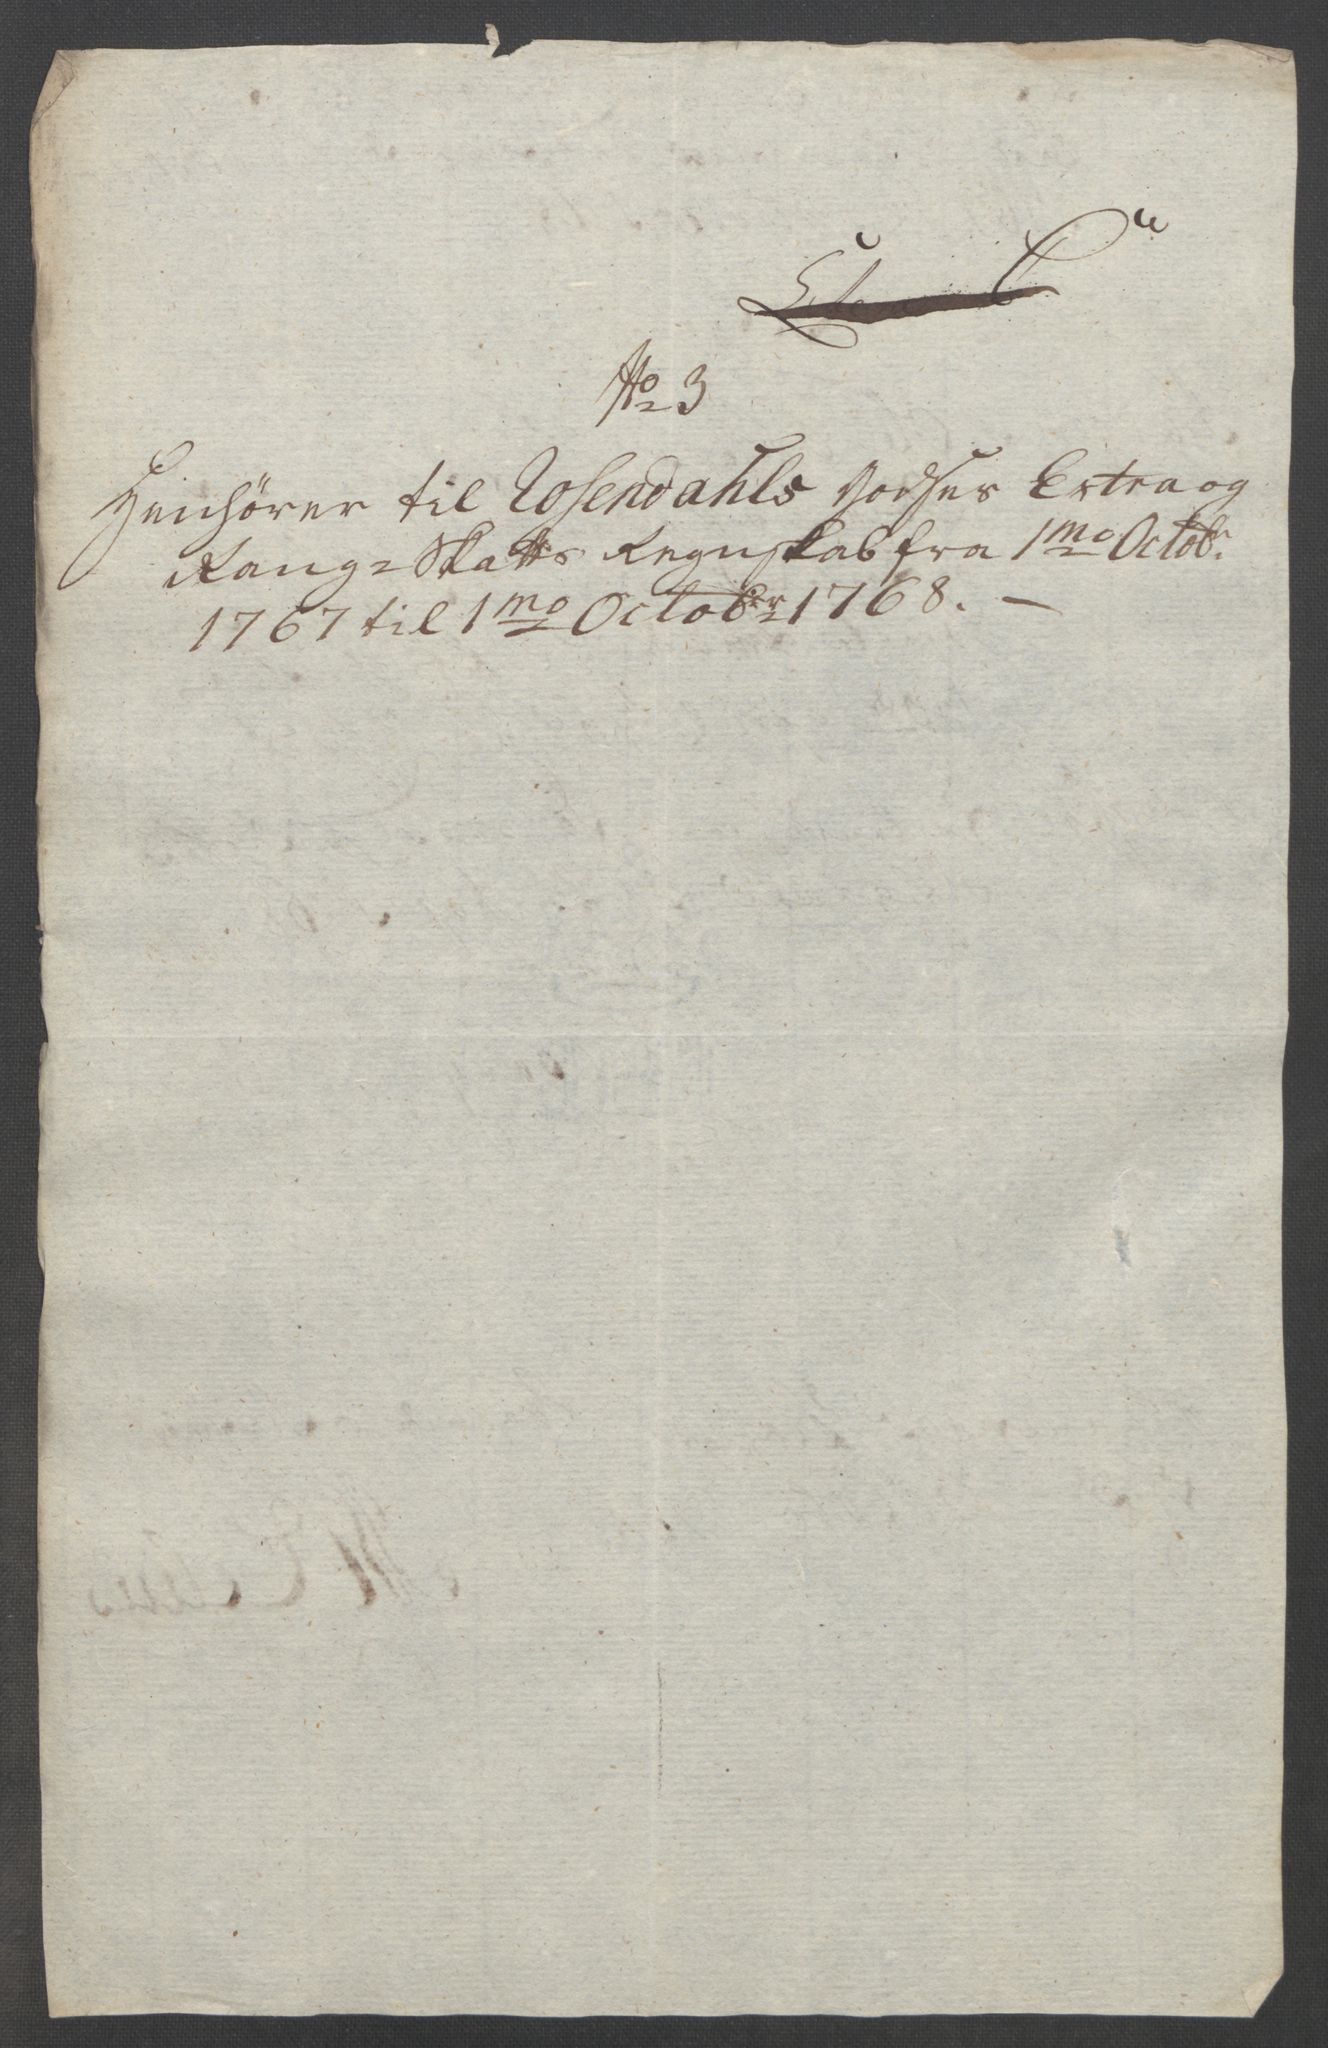 No 3
Henhörer til Rosendahls Godses Extra og
Rang- Skatts Regnskab fra 1mo Octobr.
1767 til 1mo October 1768. —